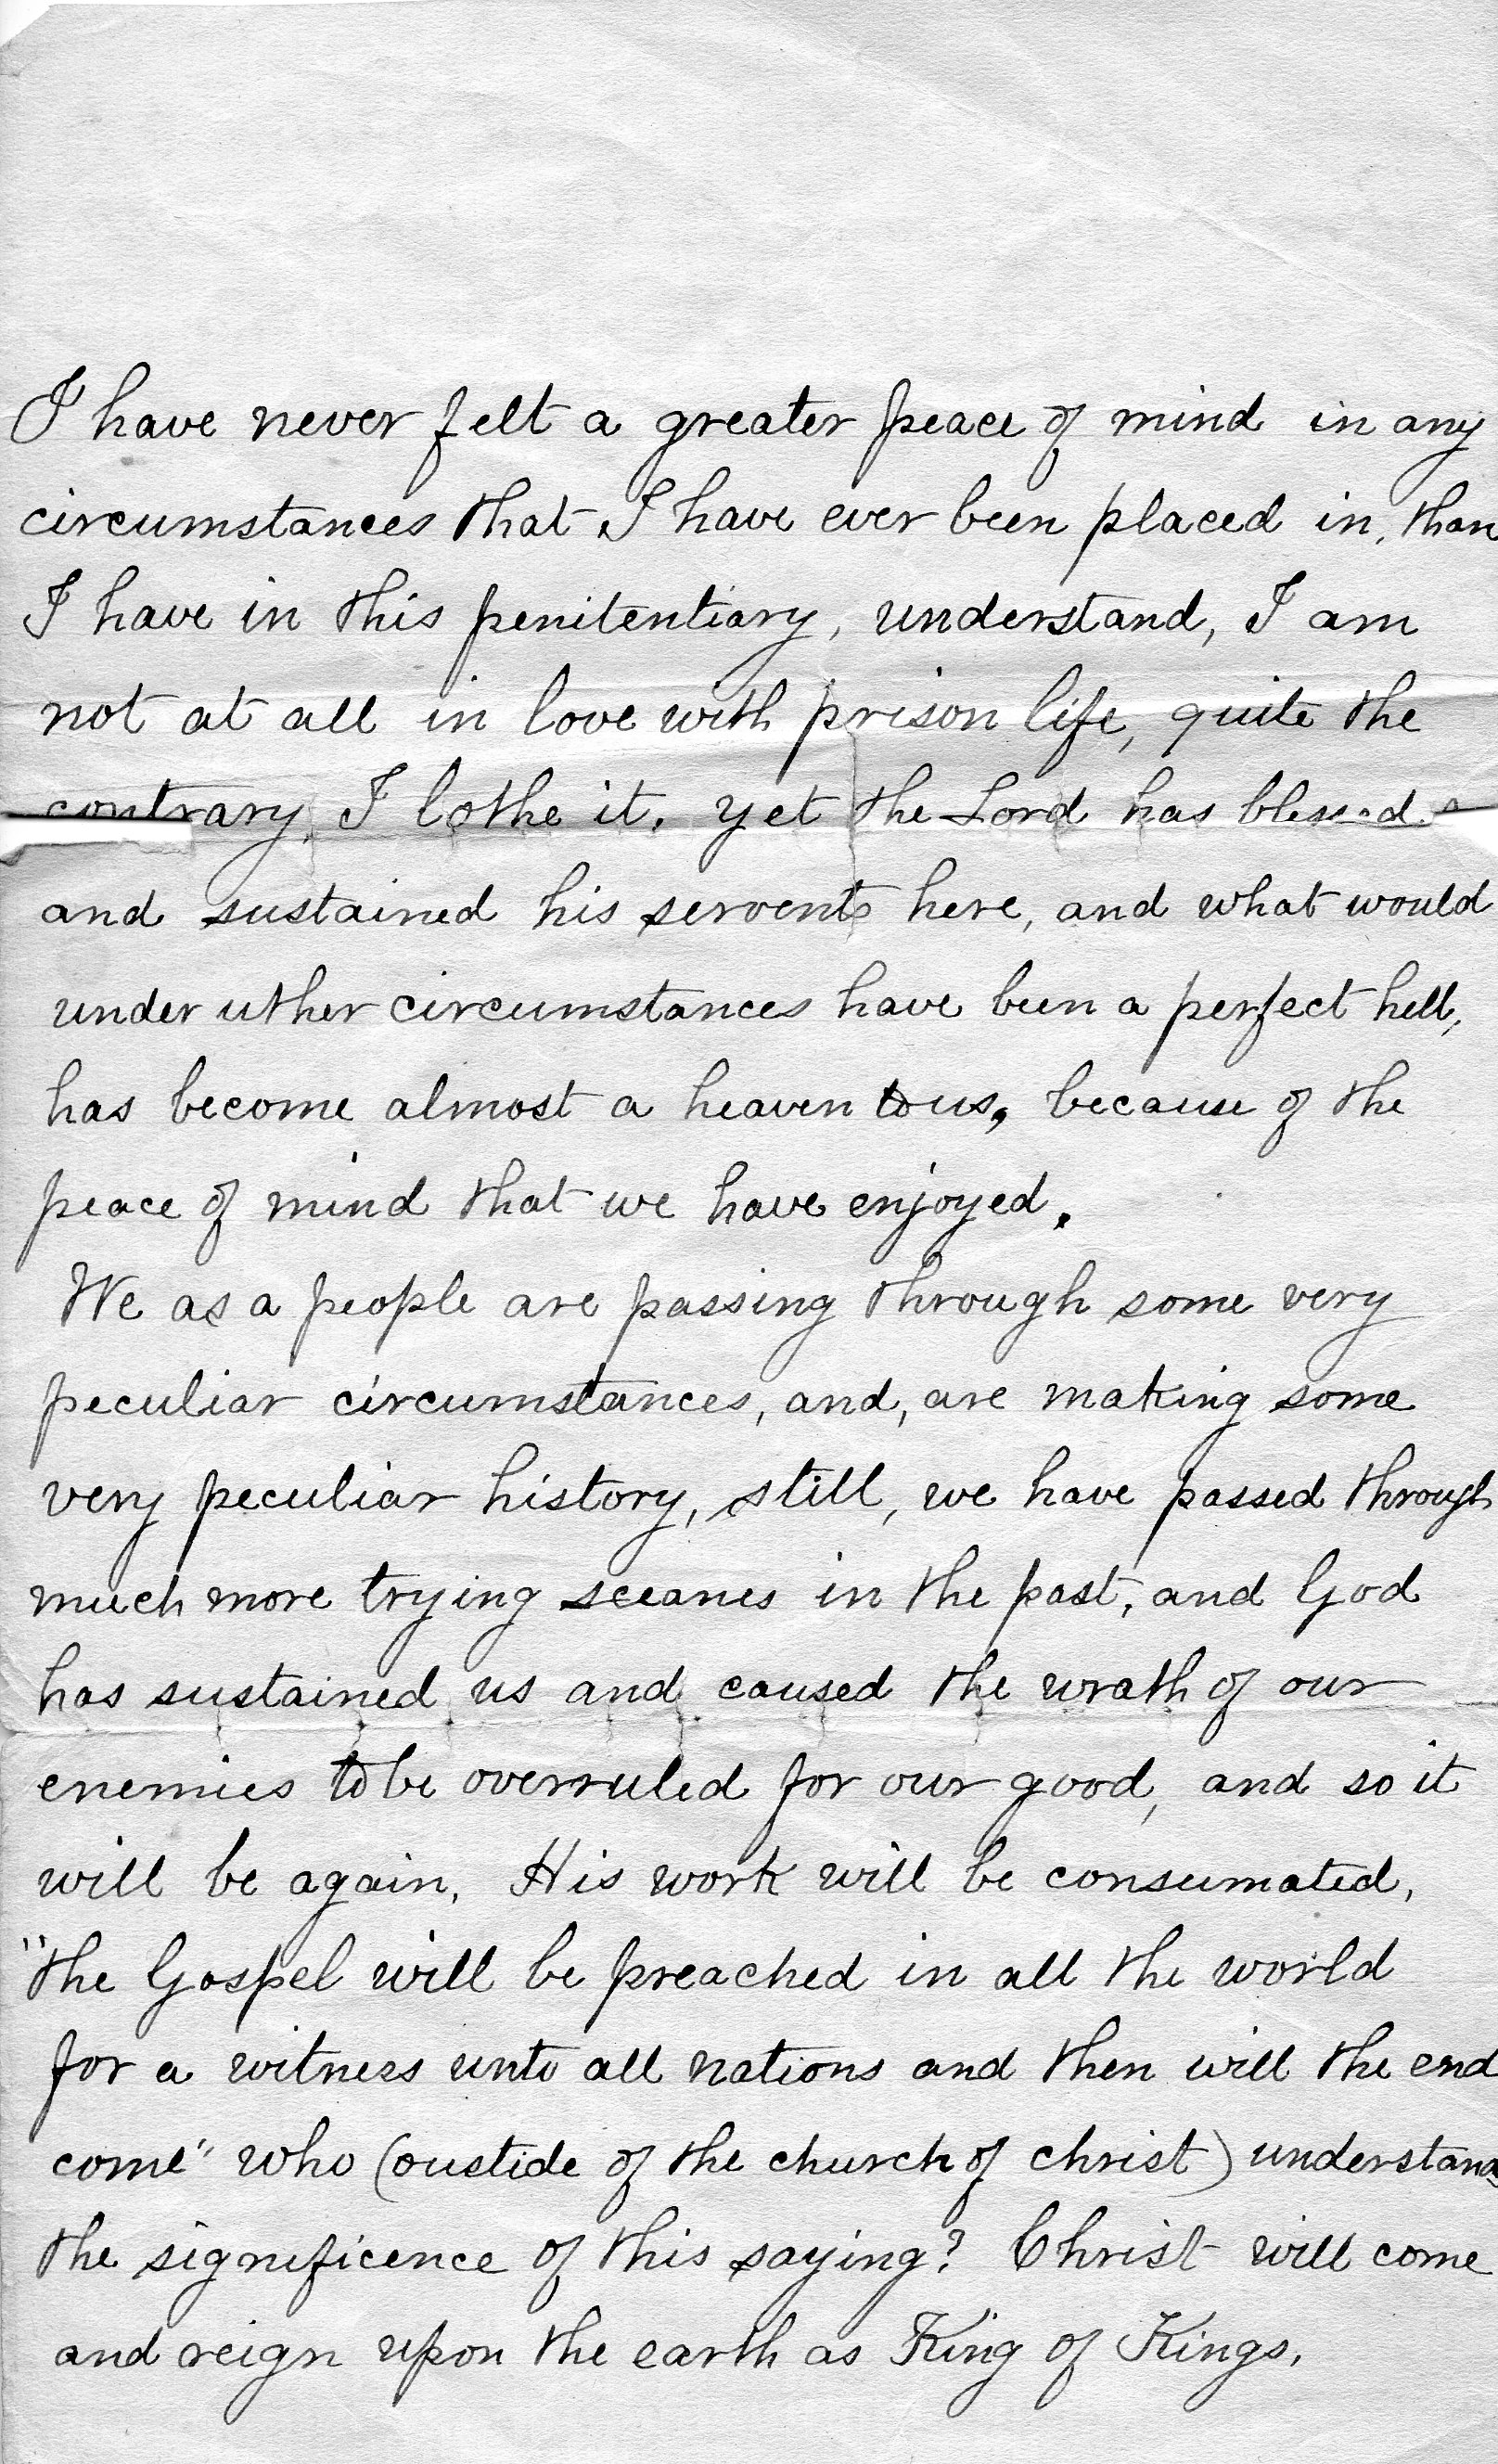 I have never felt a greater peace of mind in any
circumstances that I have ever been placed in, than
I have in this penitentiary, understand, I am
not at all in love with prison life, quite the
contrary, I lothe it. yet the Lord has blessed
and sustained his servents here, and what would
under uther circumstances have been a perfect hell,
has become almost a heaven to us, because of the
peace of mind that we have enjoyed.
We as a people are passing through some very
peculiar circumstances, and, are making some
very peculiar history, still, we have passed through
much more trying sceanes in the past, and God
has sustained us and caused the wrath of our
enemies to be overruled for our good, and so it
will be again. His work will be consumated,
"the Gospel will be preached in all the world
for a witness unto all nations and then will the end
come" who (oustide of the church of christ) understands
the significence of this saying? Christ will come
and reign upon the earth as King of Kings.